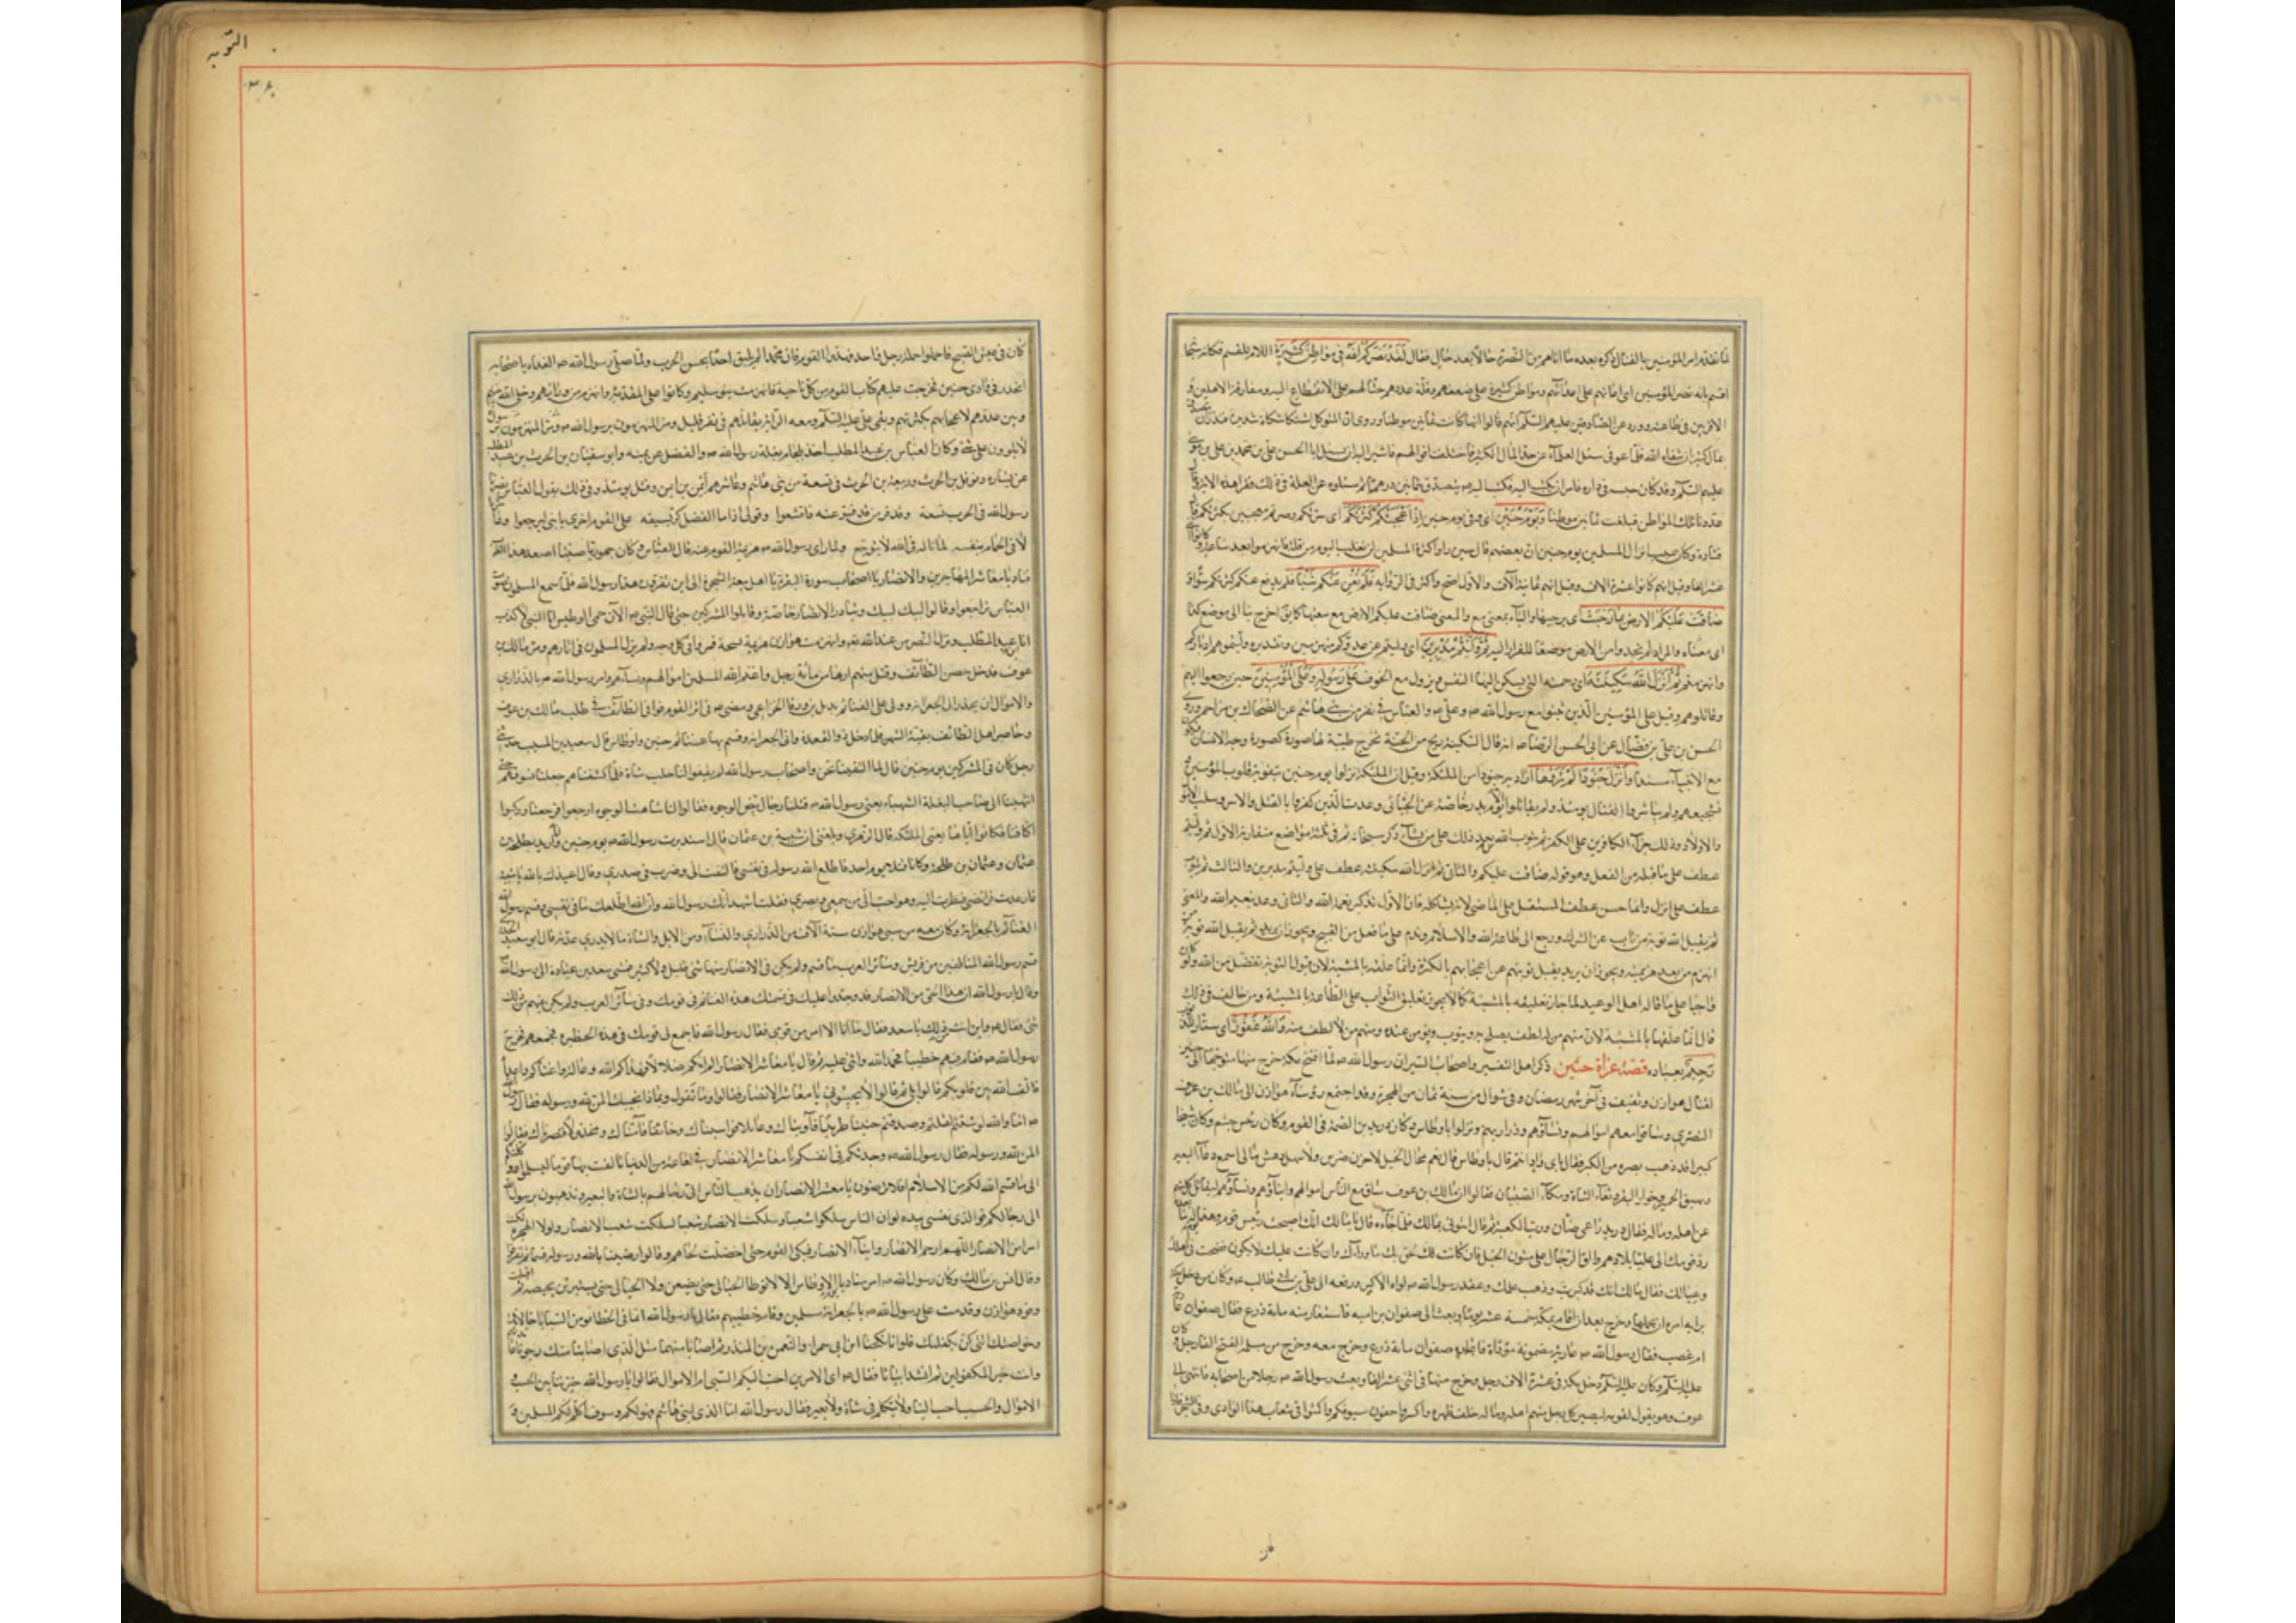 لما تقدم امر المؤمنين بالقتال ذكره بعده ما اتاهم من النصرة حالا بعد حال فقال لقد نصركم الله فى مواطن كثيرة اللام للقسم فكانه سبحانه
اقسم بانه نصر المؤمنين اى اعانهم على اعدائهم فى مواطن كثيرة على ضعفهم وقلة عددهم حثا لهم على الانقطاع اليه ومفارقة الاهلين و
الاقربين فى طاعته وورد عن الصادقين عليهم السلام انهم قالوا انها كانت ثمانين موطنا وروى ان المتوكل اشتكى شكاة شديدة فنذر ان يتصدق
بمال كثير ان شفاه الله فلما عوفى سئل العلماء عن حد المال الكثير فاختلف اقوالهم فاشير اليه ان يسئل ابا الحسن على بن محمد بن على بن موسى
عليهم السلام وقد كان حبسه فى داره فامر ان يكتب اليه فكتب اليه يتصدق بثمانين درهما ثم سئلوه عن العلة فى ذلك فقرأ هذه الاية وقال
عددنا تلك المواطن فبلغت ثمانين موطنا ويوم حنين اى وفى يوم حنين اذ اعجبتكم كثرتكم اى سرتكم وصرتم معجبين بكثرتكم قال
قتادة وكان سبب انهزام المسلمين يوم حنين ان بعضهم قال حين راى كثرة المسلمين لن نغلب اليوم من قلة فانهزموا بعد ساعة وكانوا اثنى
عشر الفا وقيل انهم كانوا عشرة الاف وقيل انهم ثمانية الآف والاول اصح واكثر فى الرواية فلم تغن عنكم شيئا فلم يدفع عنكم كثرتكم سوءا و
ضاقت عليكم الارض بما رحبت اى برحبها والباء بمعنى مع والمعنى ضاقت عليكم الارض مع سعتها كما يقال اخرج بنا الى موضع كذا
اى معناه والمراد لم تجدوا من الارض موضعا للفرار اليه ثم وليتم مدبرين اى وليتم عن عدوكم منهزمين وتقديره وليتموهم ادباركم
وانهزمتم ثم انزل الله سكينته اى رحمته التى يسكن اليها النفس ويزول معها الخوف على رسوله وعلى المؤمنين حين رجعوا اليهم
وقاتلوهم وقيل على المؤمنين الذين ثبتوا مع رسول الله ص وعلى ع والعباس فى نفر من بنى هاشم عن الضحاك بن مزاحم وروى
الحسن بن على بن فضال عن ابى الحسن الرضا ع انه قال السكينة ريح من الجنة تخرج طيبة لها صورة كصورة وجه الانسان فتكون
مع الانبياء وانزل جنودا لم تروها اراد به جنودا من الملئكة وقيل ان الملئكة نزلوا يوم حنين بتقوية قلوب المؤمنين و
تشجيعهم ولم يباشروا القتال يومئذ ولم يقاتلوا الا يوم بدر خاصة عن الجبائى وعذب الذين كفروا بالقتل والاسر وسلب الاموال
والاولاد وذلك جزاء الكافرين على الكفر ثم يتوب الله من بعد ذلك على من يشاء ذكر سبحانه ثم فى ثلثة مواضع متقاربة الاول ثم وليتم
عطف على ما قبله من الفعل وهو قوله ضاقت عليكم والثانى ثم انزل الله سكينته عطف على وليتم مدبرين والثالث ثم يتوب
عطف على انزل وانما حسن عطف المستقبل على الماضى لانه يشاكله فان الاول تذكير بنعمة الله والثانى وعد بنعيم الله والمعنى
ثم يقبل الله توبة من تاب عن الشرك ورجع الى طاعة الله والاسلام وندم على ما فعل من القبيح ويجوز ان يريد ثم يقبل الله توبة من
انهزم من بعد هزيمته ويجوز ان يريد يقبل توبتهم عن اعجابهم بالكثرة وانما علقه بالمشية لان قبول التوبة تفضل من الله ولو كان
واجبا على ما قاله اهل الوعيد لما جاز تعليقه بالمشية كما لا يجوز تعليق الثواب على الطاعة بالمشية ومن خالف فى ذلك
قال انما علقها بالمشية لان منهم من له لطف يصلح به ويتوب ويؤمن عنده ومنهم من لا لطف منه والله غفور اى ستار للذنوب
رحيم بعباده قصة غزاة حنين ذكر اهل التفسير واصحاب السير ان رسول الله ص لما افتتح مكة خرج منها متوجها الى حنين
لقتال هوازن وثقيف فى آخر شهر رمضان وفى شوال من سنة ثمان من الهجرة وقد اجتمع رؤساء هوازن الى مالك بن عوف
النصرى وساقوا معهم اموالهم ونساؤهم وذراريهم ونزلوا باوطاس وكان دريد بن الصمة فى القوم وكان رئيس جشم وكان شيخا
كبيرا قد ذهب بصره من الكبر فقال باى واد انتم قال باوطاس قال نعم مجال الخيل لا حزن ضرس ولا سهل دهش مالى اسمع دعاء البعير
ونهيق الحمير وخوار البقر وثغاء الشاة وبكاء الصبيان فقالوا ان مالك بن عوف ساق مع الناس اموالهم وابناؤهم ونساؤهم ليقاتل كل منهم
عن اهله وماله فقال دريد راعى ضان ورب الكعبة ثم قال ائتونى بمالك فلما جاءه قال يا مالك انك اصبحت رئيس قومك
رد قومك الى عليا بلادهم والق الرجال على متون الخيل فان كانت لك لحق بك من ورآءك وان كانت عليك لا يكون فضحت فى اهلك
وعيالك فقال له مالك انك قد كبرت وذهب علمك وعقد رسول الله ص لواءه الاكبر ودفعه الى على بن ابى طالب ع وكان من دخل مكة
براية امره ان يحملها وخرج بعد ان اقام بمكة خمسة عشر يوما وبعث الى صفوان بن امية فاستعار منه ماية درع فقال صفوان عارية
ام غصب فقال رسول الله ص عارية مضمونة مؤداة فاعاره صفوان ماية درع وخرج معه وخرج من مسلمة الفتح الفا رجل وكان
عليه السلام دخل مكة فى عشرة الاف رجل وخرج منها فى اثنى عشر الفا وبعث رسول الله ص رجلا من اصحابه فانتهى الى
عوف وهو يقول لقومه ليصير كل رجل منهم اهله وماله خلف ظهره واكسروا جفون سيوفكم واكمنوا فى شعاب هذا الوادى وفى الشجر فاذا
التوبه
كان فى غبش الصبح فاحملوا حملة رجل واحد فهدوا القوم فان محمدا لم يلق احدا يحسن الحرب ولما صلى رسول الله ص الغداة باصحابه
انحدر فى وادى حنين فخرجت عليهم كتائب القوم من كل ناحية فانهزمت بنو سليم وكانوا على المقدمة وانهزم من ورائهم وخلى الله بينهم
وبين عدوهم لاعجابهم بكثرتهم وبقى على عليه السلام ومعه الراية يقاتلهم فى نفر قليل ومر المنهزمون برسول الله ص
لا يلوون على شئ وكان العباس بن عبد المطلب اخذ بلجام بغلة رسول الله ص والفضل عن يمينه وابو سفيان بن الحرث بن عبد المطلب
عن يساره ونوفل بن الحرث وربيعة بن الحرث فى تسعة من بنى هاشم وعاشرهم ايمن بن ام ايمن وقتل يومئذ وفى ذلك يقول العباس نصرنا
رسول الله فى الحرب تسعة وقد فر من قد فر عنه فاقشعوا وقولى اذا ما الفضل كر بسيفه على القوم اخرى يا بنى ليرجعوا وعاشرنا
لاقى الحمام بنفسه لما ناله فى الله لا يتوجع ولما راى رسول الله ص هزيمة القوم عنه قال للعباس وكان جهوريا صيتا اصعد هذا الظرب
فناد يا معاشر المهاجرين والانصار يا اصحاب سورة البقرة يا اهل بيعة الشجرة الى اين تفرون هذا رسول الله فلما سمع المسلمون صوت
العباس تراجعوا وقالوا لبيك لبيك وتبادر الانصار خاصة وقاتلوا المشركين حتى قال النبى ص الآن حمى الوطيس انا النبى لا كذب
انا ابن عبد المطلب ونزل النصر من عند الله تعالى وانهزمت هوازن هزيمة قبيحة فمروا فى كل وجه ولم يزل المسلمون فى اثارهم ومر مالك بن
عوف فدخل حصن الطائف وقتل منهم زهاء مائة رجل واغنم الله المسلمين اموالهم ونساءهم وامر رسول الله ص بالذرارى
والاموال ان يحدر الى الجعرانة وولى على الغنائم بديل بن ورقا الخزاعى ومضى ص فى اثر القوم فوافى الطائف فى طلب مالك بن عوف
وحاصر اهل الطائف بقية الشهر فلما دخل ذو القعدة اتى الجعرانة وقسم بها غنائم حنين واوطاس قال سعيد بن المسيب حدثنى
رجل كان فى المشركين يوم حنين قال لما التقينا نحن واصحاب رسول الله لم يقفوا لنا حلب شاة فلما كشفناهم جعلنا نسوقهم حتى
انتهينا الى صاحب البغلة الشهباء يعنى رسول الله ص فتلقانا رجال بيض الوجوه فقالوا لنا شاهت الوجوه ارجعوا فرجعنا وركبوا
اكتافنا فكانوا اياها يعنى الملئكة قال الزهرى وبلغنى ان شيبة بن عثمان قال استدبرت رسول الله ص يوم حنين وانا اريد ان اقتله بطلحة بن
عثمان وعثمان بن طلحة وكانا قتلا يوم احد فاطلع الله رسوله فى نفسى فالتفت الى وضرب فى صدرى وقال اعيذك بالله يا شيبة
فارعدت فرائصى فنظرت اليه وهو احب الى من سمعى وبصرى فقلت اشهد انك رسول الله وان الله اطلعك على ما فى نفسى وقسم رسول الله
الغنائم بالجعرانة وكان معه من سبى هوازن ستة آلاف من الذرارى والنساء ومن الابل والشاة ما لا يدرى عدته قال ابو سعيد الخدرى
قسم رسول الله للمتالفين من قريش وسائر العرب ما قسم ولم يكن فى الانصار منها شئ قليل ولا كثير فمشى سعد بن عبادة الى رسول الله
وقال يا رسول الله ان هذا الحى من الانصار قد وجدوا عليك فى قسمك هذه الغنائم فى قومك وفى سائر العرب ولم يكن فيهم من ذلك
شئ فقال ص واين انت من ذلك يا سعد فقال ما انا الا امرء من قومى فقال رسول الله فاجمع لى قومك فى هذه الحظيرة فجمعهم فخرج
رسول الله ص فقام فيهم خطيبا فحمد الله واثنى عليه ثم قال يا معاشر الانصار الم اتكم ضلالا فهداكم الله وعالة فاغناكم الله واعداء
فالف الله بين قلوبكم قالوا بلى ثم قال الا تجيبونى يا معاشر الانصار فقالوا وما نقول وبماذا نجيبك المن لله ورسوله فقال رسول الله
ص اما والله لو شئتم لقلتم وصدقتم جئتنا طريدا فآويناك وعائلا فواسيناك وخائفا فآمناك ومخذولا فنصرناك فقالوا
المن لله ورسوله فقال رسول الله ص وجدتم فى انفسكم يا معاشر الانصار فى لعاعة من الدنيا تالفت بها قوما ليسلموا ووكلتكم
الى ما قسم الله لكم من الاسلام افلا ترضون يا معشر الانصار ان يذهب الناس الى رحالهم بالشاة والبعير وتذهبون برسول الله
الى رحالكم فوالذى نفسى بيده لو ان الناس سلكوا شعبا وسلكت الانصار شعبا لسلكت شعب الانصار ولولا الهجرة لكنت
امرأ من الانصار اللهم ارحم الانصار وابناء الانصار فبكى القوم حتى اخضلت لحاهم وقالوا رضينا بالله ورسوله قسما ثم تفرقوا
وقال انس بن مالك وكان رسول الله ص امر مناديا يوم اوطاس الا لا توطا الحبالى حتى يضعن ولا الحيالى حتى يستبرئن بحيضة ثم اقبلت
وفود هوازن وقدمت على رسول الله ص بالجعرانة مسلمين وقام خطيبهم فقال يا رسول الله انما فى الحظائر من السبايا خالاتك
وحواضنك اللاتى كن يكفلنك فلو انا ملكنا ابن ابى شمر او النعمن بن المنذر ثم اصابنا منهما مثل الذى اصابنا منك رجونا عائدتهما
وانت خير المكفولين ثم انشد ابياتا فقال ص اى الامرين احب اليكم السبى او الاموال فقالوا يا رسول الله خيرتنا بين الحسب و
الاموال والحسب احب الينا ولا نتكلم فى شاة ولا بعير فقال رسول الله اما الذى لبنى هاشم فهو لكم وسوف اكلم لكم المسلمين و